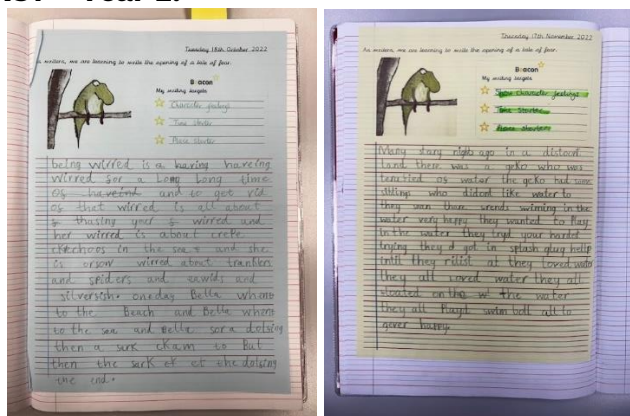 Tuesday 18th October, 2022
As writers, we are learning to write the opening of a tale of fear.
Beacon
My writing targets
Character feelings
Time starter
Place starter
being wirred is a having haveing
wirred for a Long Long time
of haveind and to get rid
of that wirred is all about
thasing your wirred and
her wirred is about crete
chkchoos in the sea and she
is orsow wirred about tranblers
and spiders and sqwids and
silversish. oneday Bella whent
to the Beach and Bella whent
to the sea and Bella sor a dolsing
then a sark cham to But
then the sark et et the dolsing
the end.
Thursday 17th November 2022
As writers, we are learning to write the opening of a tale of fear.
Beacon
My writing targets
Show Character feelings
Time starter
Place starter
Many stary night ago in a distoont
Land there was a geko who was
terrified of water the geko had some
siblings who didoet like water to
they wan there wrends swiming in the
water very happy they wanted to Play
in the water they tryd your hardist
trying they d got in splash glug hellp
intil they rilist at they Loved water
they all Loved water they all
sloated on the the water
they all Playd swim boll all to
gever happy.